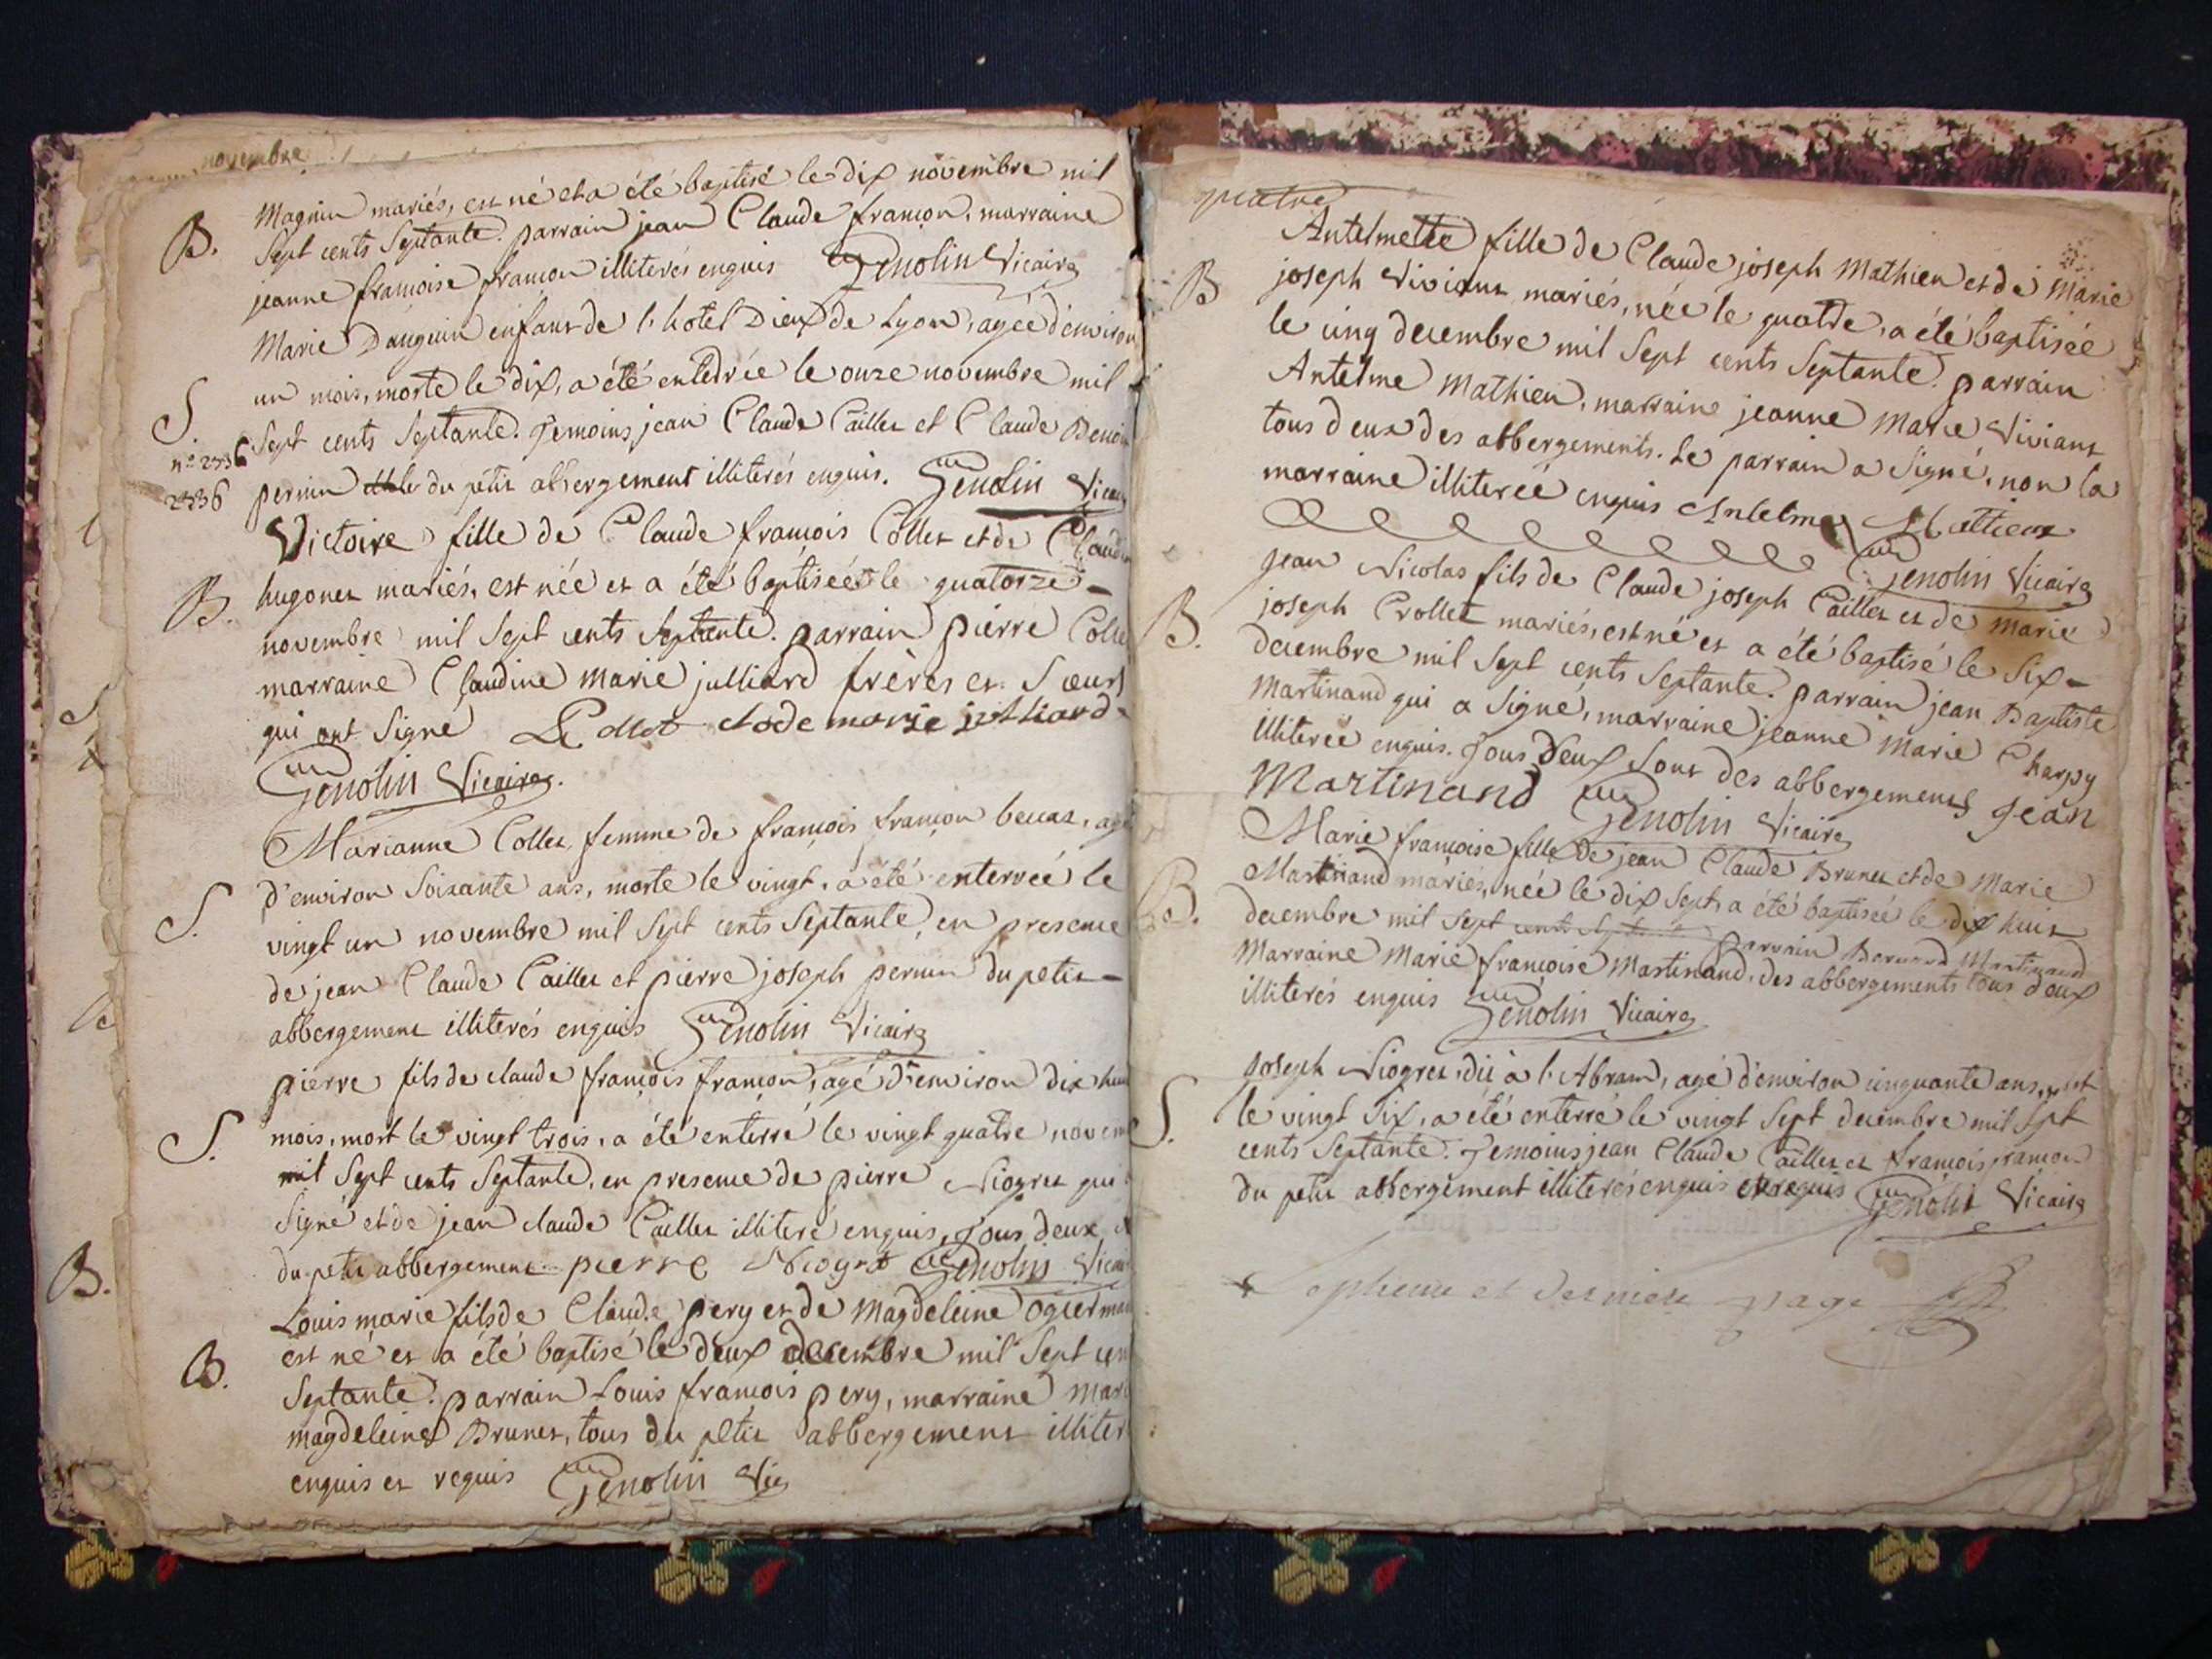 novembre
B. Magnin mariés, est né et a été baptisé le dix novembre mil
Sept cents Septante. parrain jean Claude françon, marraine
jeanne françoise françon illiterés enquis Genolin Vicaire
Marie Dauguin enfant de l'hotel Dieu de Lyon, agée d'environ
S. un mois, morte le dix, a été enterrée le onze novembre mil
n° 2336 Sept cents Septante. Temoins jean Claude Caillet et Claude Benoi
2336 perrin du petit abbergement illiterés enquis. Genolin Vicaire
Victoire fille de Claude françois Collet et de Claudi
B. hugonet mariés, est née et a été baptisée le quatorze
novembre mil Sept cents Septante. parrain pierre Colle
marraine Claudine marie julliard frères et Soeurs
qui ont Signé P Collet clode marie julliard
Genolin Vicaire.
Marianne Collet femme de françois françon beccat, agé
S. d'environ Soixante ans, morte le vingt, a été enterrée le
vingt un novembre mil Sept cents Septante, en presence
de jean Claude Caillet et pierre joseph perrin du petit
abbergement illiterés enquis Genolin Vicaire
pierre fils de claude françois françon, agé d'environ dix hui
S. mois, mort le vingt trois, a été enterré le vingt quatre novem
mil Sept cents Septante, en presence de pierre Niogret qui
Signé et de jean claude Caillet illiteré enquis, Tous deux
du petit abbergement pierre Niogret Genolin Vicai
Louis marie fils de Claude pery et de magdeleine ogier mar
est né et a été baptisé le deux decembre mil Sept cen
B. Septante. parrain Louis françois pery, marraine mari
magdeleine Brunet, tous du petit abbergement illiter
enquis et requis Genolin Vic
quatre
Antelmette fille de Claude joseph Mathieu et de Marie
B joseph Viviant mariés, née le quatre, a été baptisée
le cinq decembre mil Sept cents Septante. parrain
Antelme Mathieu, marraine jeanne Marie Viviant
tous deux des abbergements. Le parrain a Signé, non la
marraine illiterée enquis Antelme Mattieux
Genolin Vicaire
jean Nicolas fils de Claude joseph Caillet et de marie
B. joseph Crollet mariés, est né et a été baptisé le Six
decembre mil Sept cents Septante. parrain jean Baptiste
Martinand qui a Signé, marraine jeanne Marie Charpy
illiterée enquis. Tous deux Sont des abbergements Jean
Martinand Genolin Vicaire
Marie françoise fille de jean Claude Brunet et de Marie
B. Martinand mariés, née le dix Sept, a été baptisée le dix huit
decembre mil Sept cents Septante parrain Bernard Martinand
Marraine Marie françoise Martinand, des abbergements tous deux
illiterés enquis Genolin Vicaire
joseph Niogret dit à l'Abram, agé d'environ cinquante ans, mort
S. le vingt Six, a été enterré le vingt Sept decembre mil Sept
cents Septante. Temoins jean Claude Caillet et françois françon
du petit abbergement illiterés enquis et requis Genolin Vicaire
Septieme et derniere page